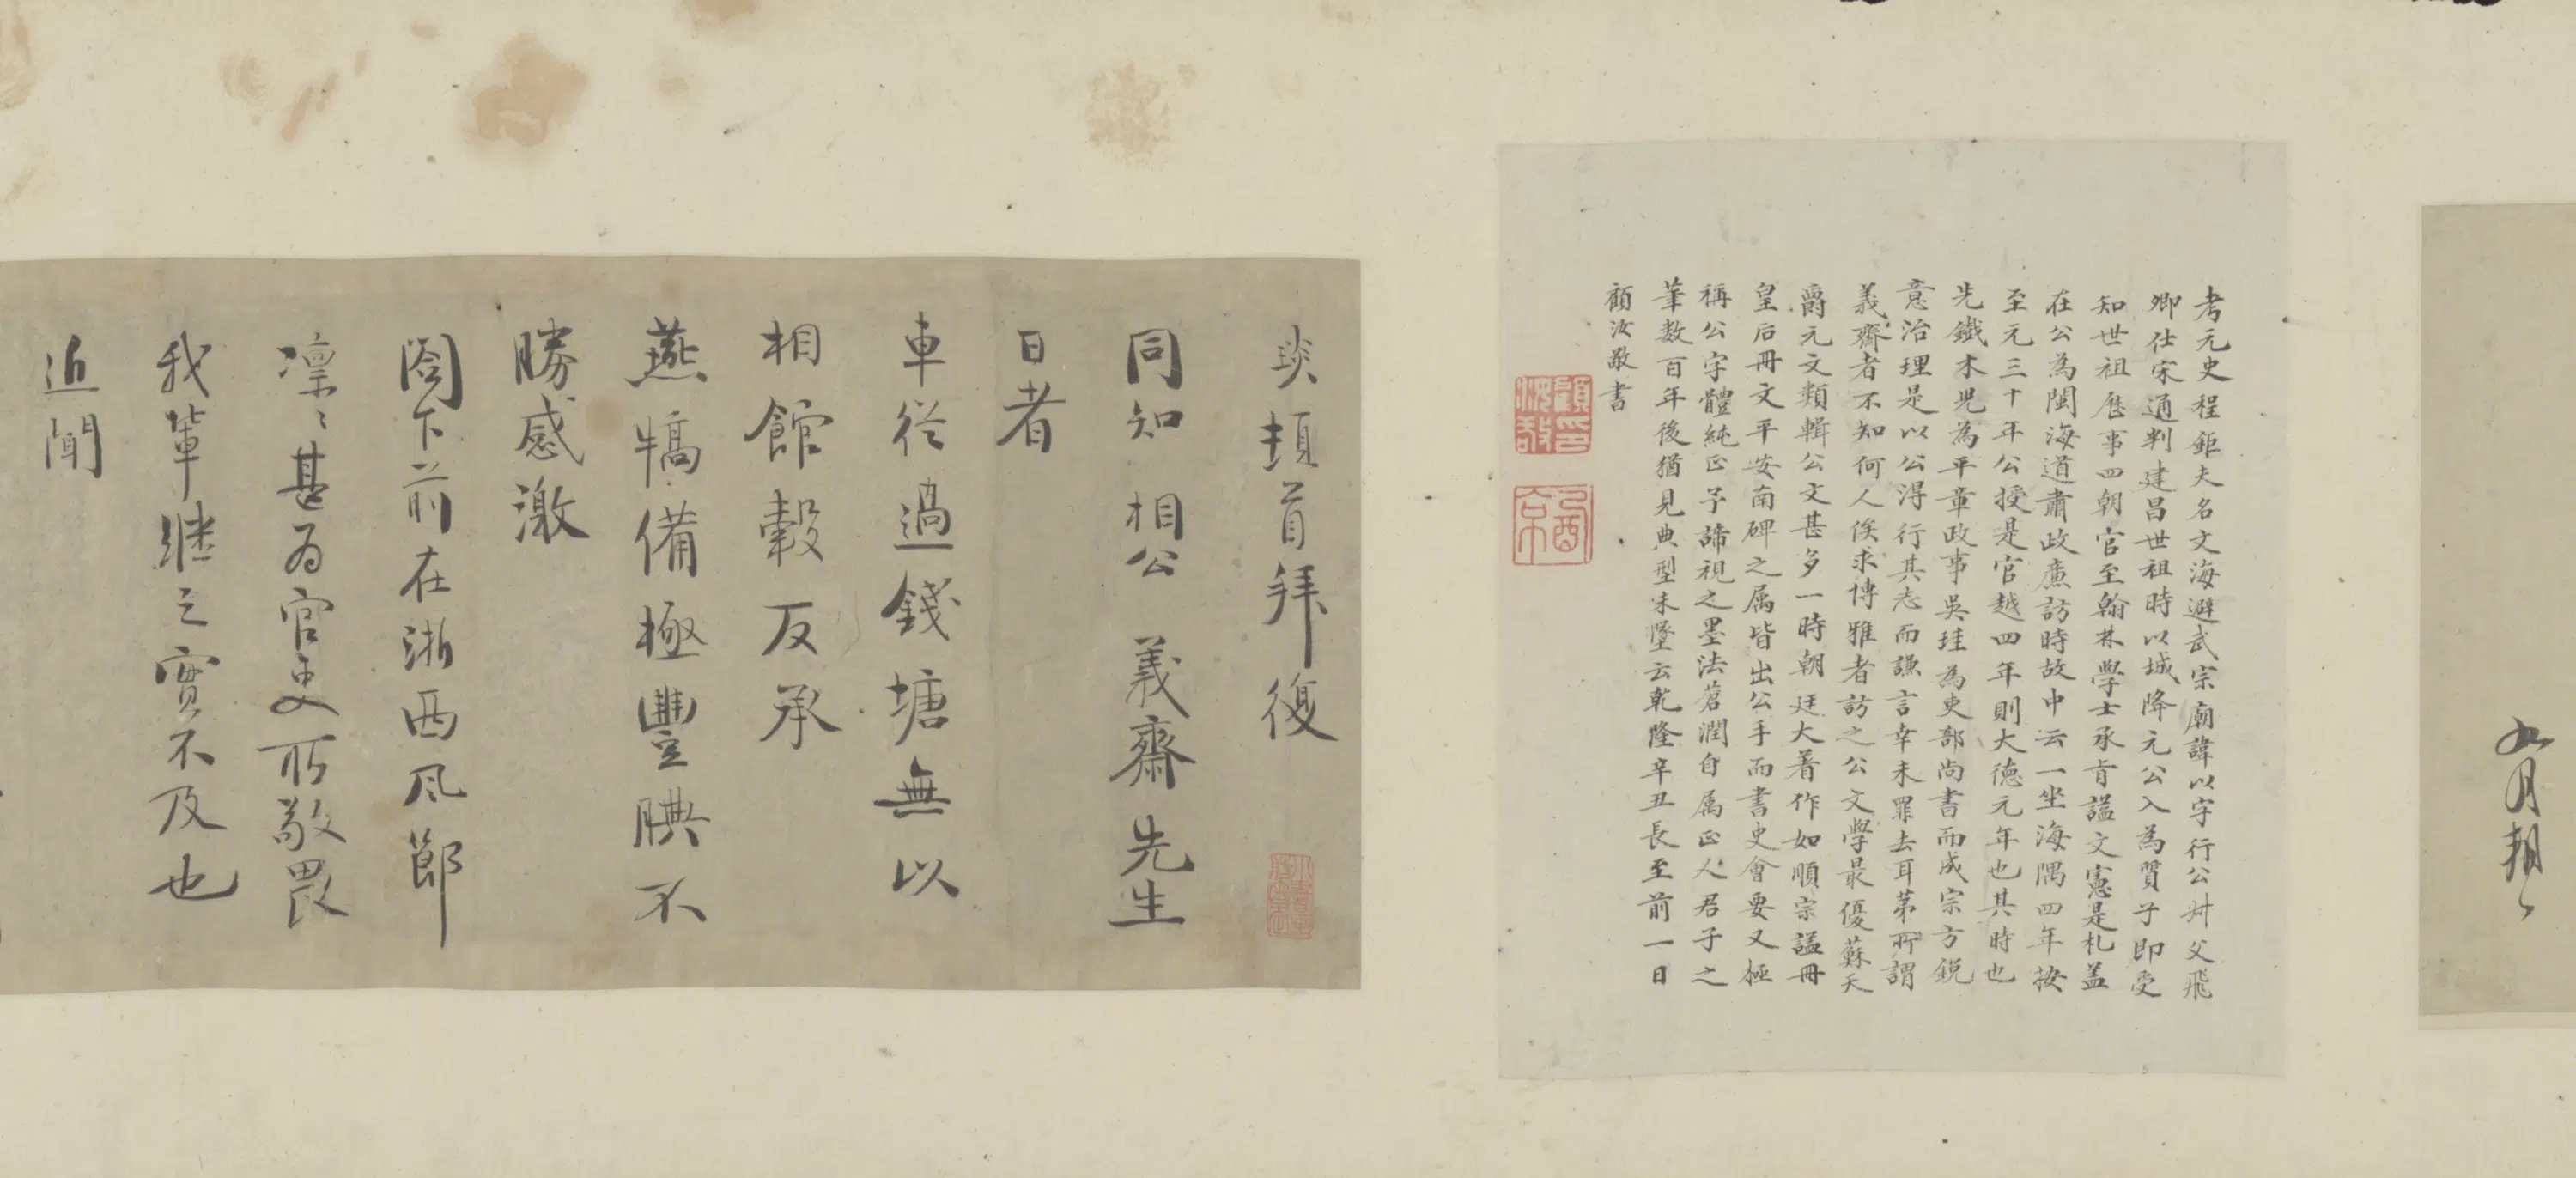 如月朔
考元史程鉅夫名文海避武宗廟諱以字行公州父飛
卿仕宋通判建昌世祖時以城降元公入為質子即受
知世祖歷事四朝官至翰林學士承旨謚文憲是札蓋
在公為閩海道肅政廉訪時故中云一坐海隅四年按
至元三十年公授是官越四年則大德元年也其時也
先鐵木兒為平章政事吳珪為吏部尚書而成宗方銳
意治理是以公得行其志而謙言幸未罪去耳苐所謂
義齋者不知何人俟求博雅者訪之公文學最優蘇天
爵元文類輯公文甚多一時朝廷大著作如順宗謚冊
皇后冊文平安南碑之属皆出公手而書史會要又極
稱公字體純正予諦視之墨法蒼潤自属正人君子之
筆數百年後猶見典型未墜云乾隆辛丑長至前一日
顧汝敬書
顧印汝敬
琰頓首拜復
同知相公義齋先生
日者
車從過錢塘無以
相館穀反承
燕犒備極豐腆不
勝感激
閣下前在浙西風節
凜〻甚為官吏所敬畏
我輩繼之實不及也
近聞